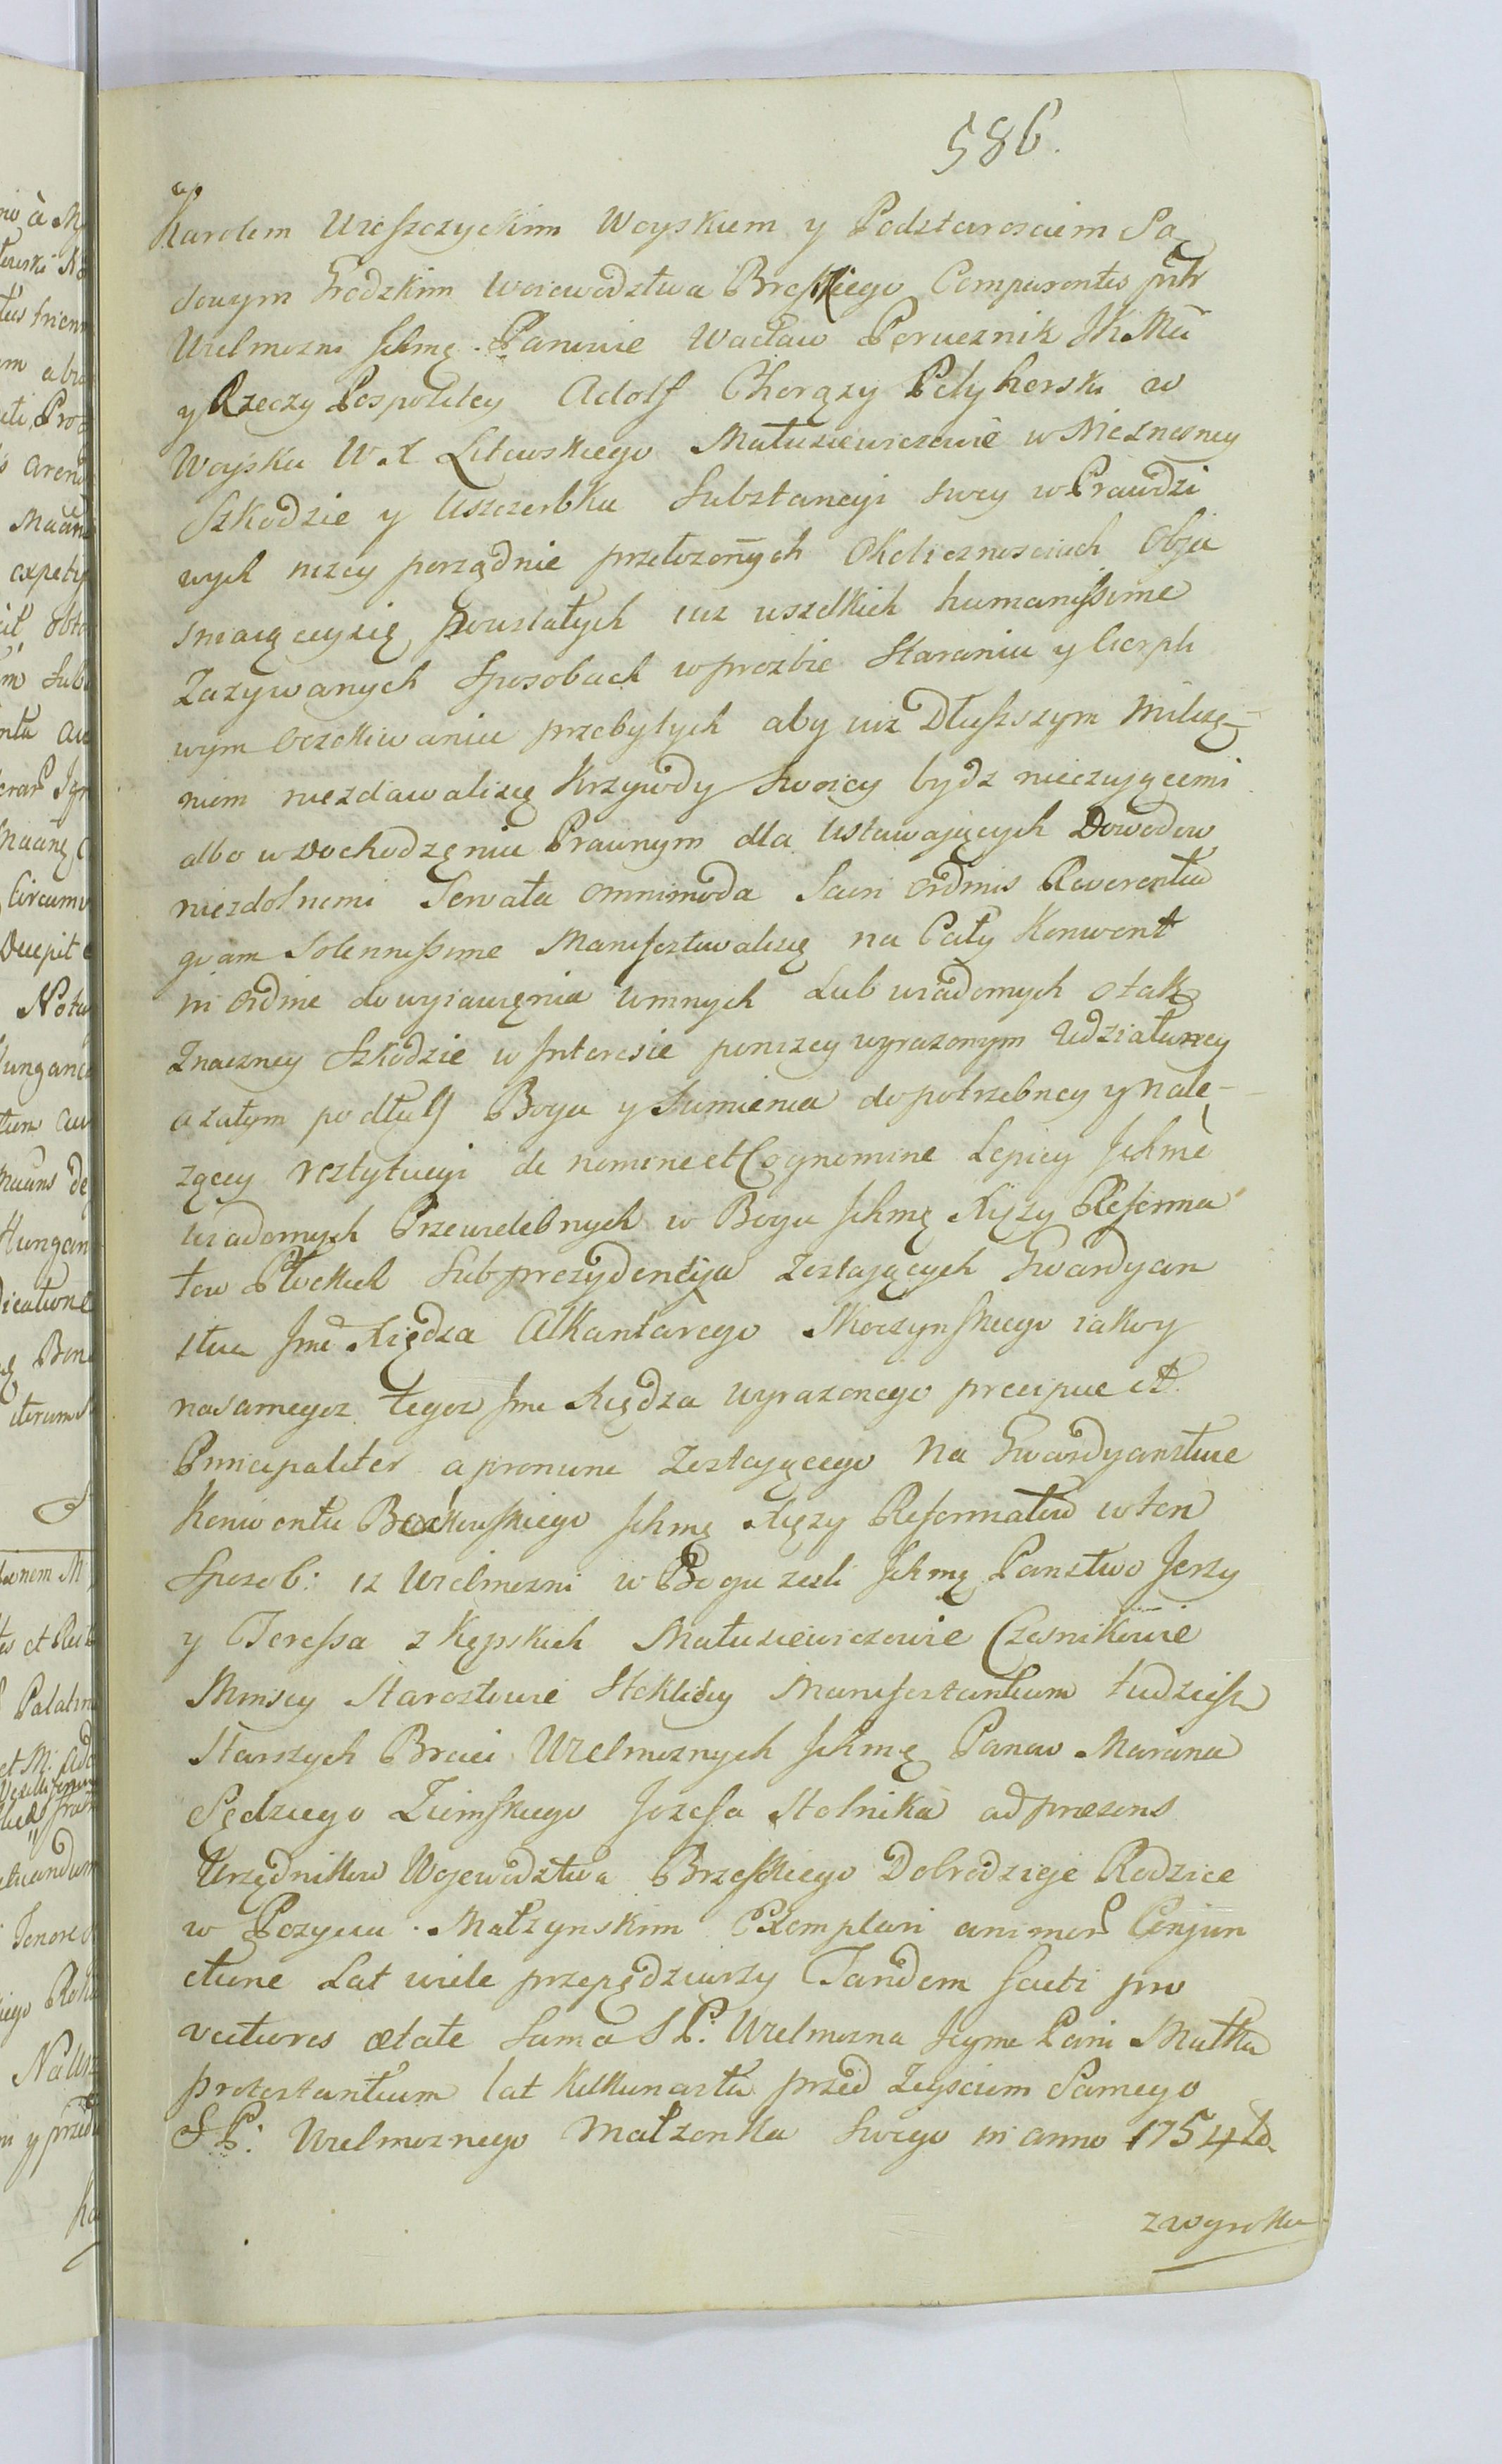 586.
Karolem Ureszczyckim Woyskiem y Podstarosciem Są
dowym Grodzkim Woiewodztwa Brestkiego Comparentes pntr
Wielmozni Jchmę Panowie Wacław Porucznik JK Mci
y Rzeczy Pospolitey Adolf Chorąży Petyhorski w
Woysku W. X Litewskiego Matusiewiczowie w Nieznosney
Szkodzie y Uszczerbku Substancyi swey w Prawdzi
wych nizey porządnie przełozonych Okolicznosciach Obja
sniaięcysię powstałych iuz wszelkich humanissime
Zazywanych Sposobach w prozbie Staraniu y Cierpli
wym Oczekiwaniu przebytych aby iuz Dłuższym Milczę-
niem niezdawalisię Krzywdy swoiey bydz nieczującemi
albo w Dochodzęniu Prawnym dla Ustawających Dowodow
niezdolnemi Servata omnimoda Sacri Ordinis Reverentia
qvam Solennissime Manifestowalisię na Cały Konwent
in ordine do wyiawięnia winnych Lub wiadomych o tak
Znaczney Szkodzie w Interesie ponizey wyrazonym Udziałaney
a zatym podług Boga y Sumienia do potrzebney y nale-
zącey restytucyi de nomine et Cognomine Lepiey Jchmę
wiadomych Przewielebnych w Bogu Jchmę Xięzy Reforma
tow Płockich Subprezydencya zostających Gwardyan
stwa Jmc Xiędza Alkantarego Skoczynskiego iakoy
nasamegoz tegoz Jmc Xiędza wyrazonego precipue et
Principaliter a pronunc Zostającego Na Gwardyanstwie
Konwentu Boćkowskiego Jchmę Xięzy Reformatow w ten
Sposob: iz Wielmozni w Bogu zeszli Jchmę Panstwo Jerzy
y Teressa z Kępskich Matusiewiczowie Czesnikowie
Minscy Starostowie Stokliscy Manifestantium tudziesz
Starszych Braci Wielmoznych Jchmę Panow Marcina
Sędziego Ziemskiego Jozefa Stolnika ad præsens
Urzędnikow Wojewodztwa Brzeskiego Dobrodzieje Rodzice
w Pozyciu Małzynskim Exemplari animor Conjun
ctione Lat wiele przepędziwszy Tandem facti pro
vectiores ætate sama S P: Wielmozna Jeyme Pani Matka
protestantium lat kilkunastu przed Zeysciem Samego
S P: Wielmoznego Małzonka swego in anno 1754to
zwyroku